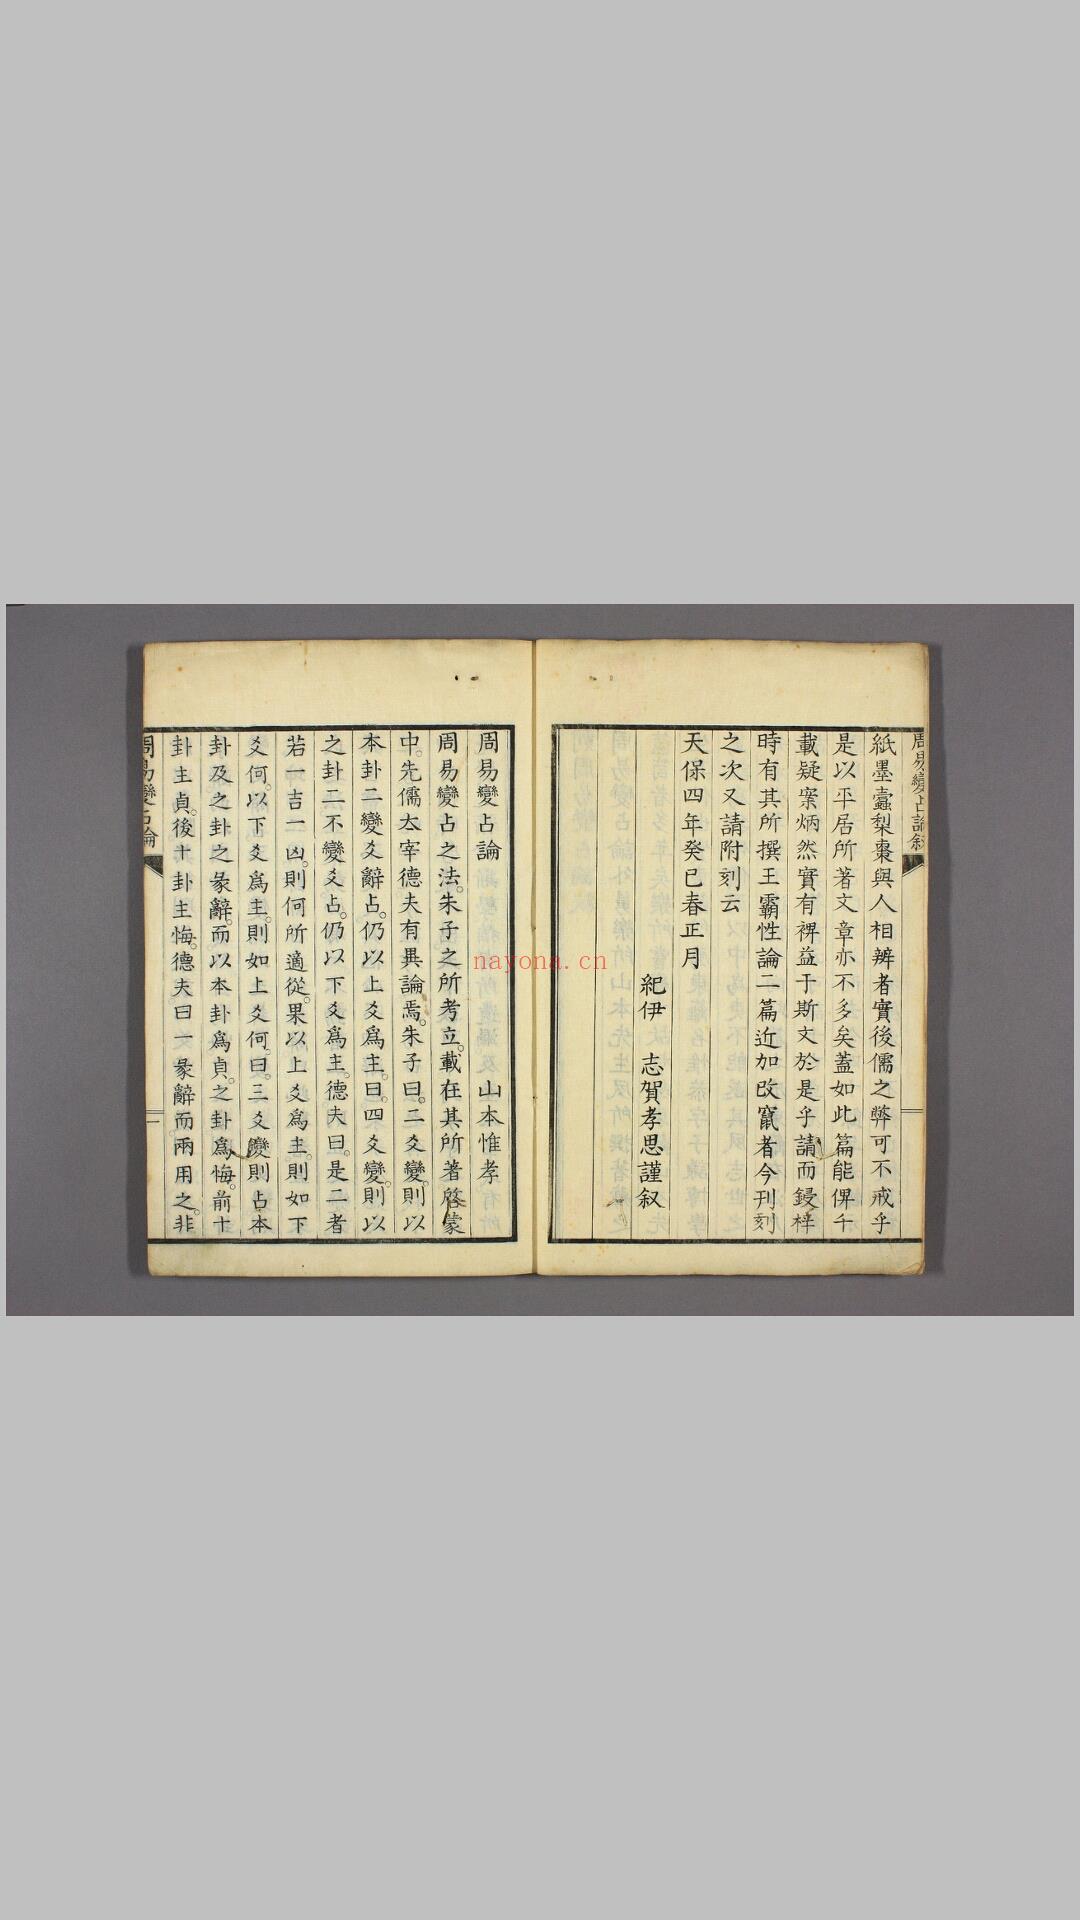 周易變占論叙
紙墨蠧梨棗與人相辨者實後儒之弊可不戒乎
是以平居所著文章亦不多矣蓋如此篇能俾千
載疑案炳然實有裨益于斯文於是乎請而鋟梓
時有其所撰王霸性論二篇近加改竄者今刊刻
之次又請附刻云
天保四年癸巳春正月
紀伊 志賀孝思謹叙
周易變占論 山本惟孝
周易變占之法。朱子之所考立。載在其所著啓蒙
中。先儒太宰德夫有異論焉。朱子曰。二爻變。則以
本卦二變爻辭占。仍以上爻爲主。曰。四爻變。則以
之卦二不變爻占。仍以下爻爲主。德夫曰。是二者
若一吉一凶。則何所適從。果以上爻爲主。則如下
爻何。以下爻爲主。則如上爻何。曰。三爻變則占本
卦及之卦之彖辭。而以本卦爲貞。之卦爲悔。前十
卦主貞。後十卦主悔。德夫曰一彖辭而兩用之。非
周易變占論
一
nayona.cn